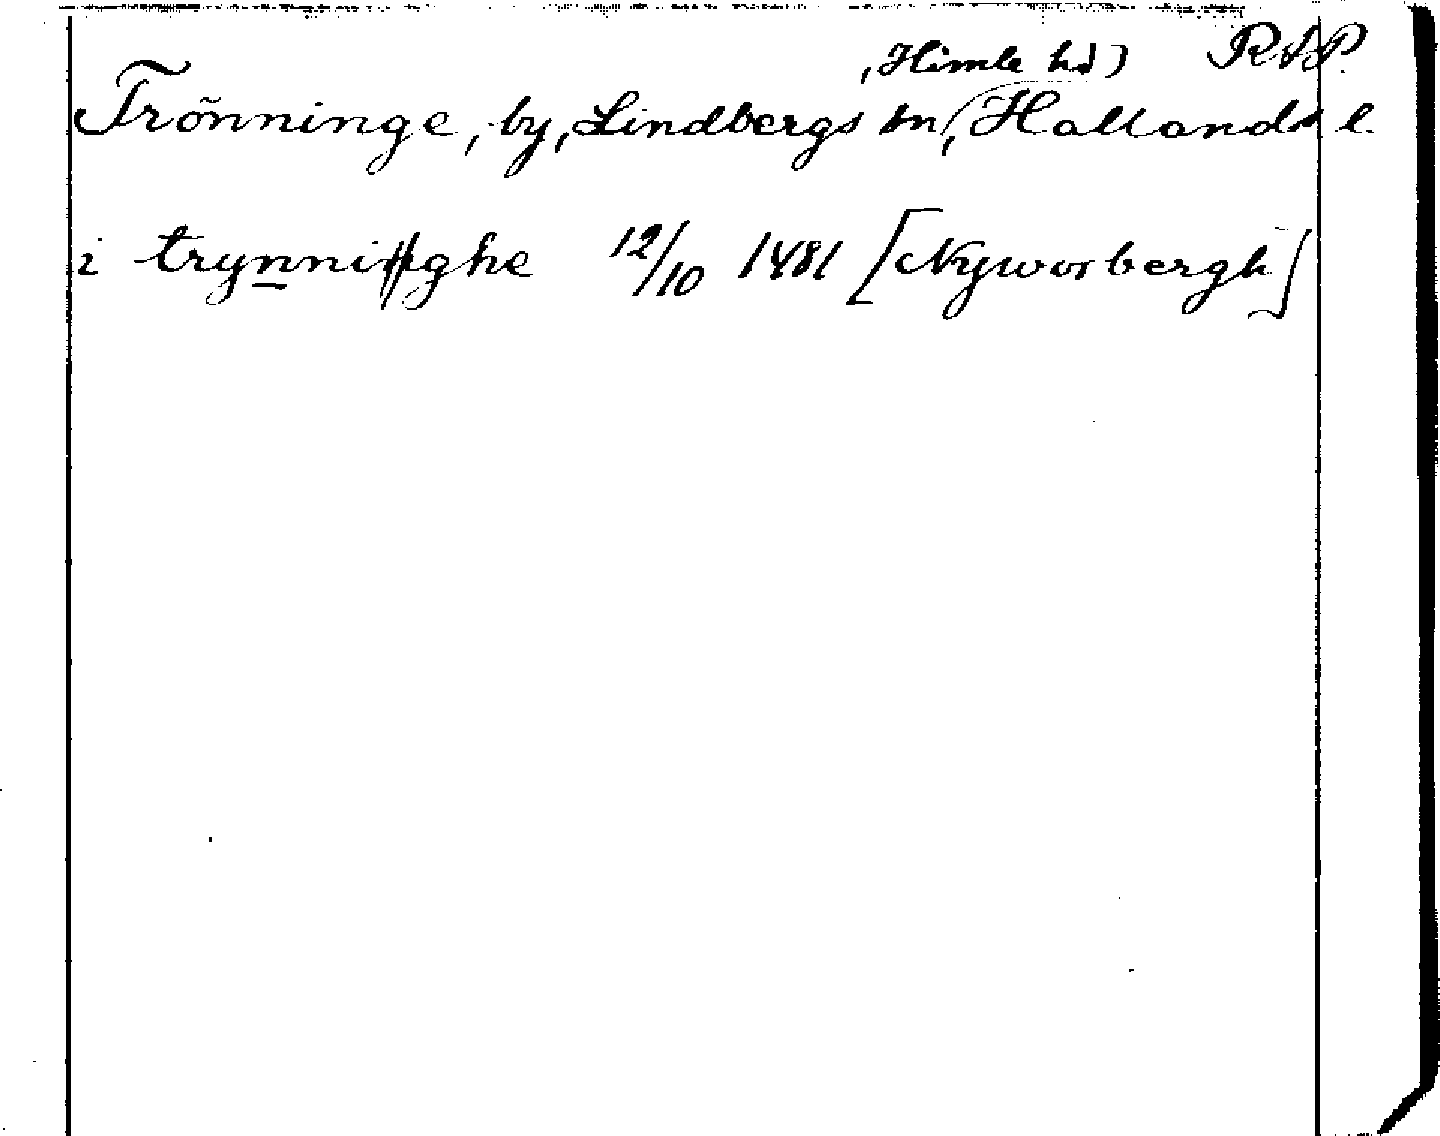 , Himle hd) RAP.
Trönninge, by, Lindbergs sn, Hallands l.
i trynnighe 12/10 1481 [Nyworbergh]